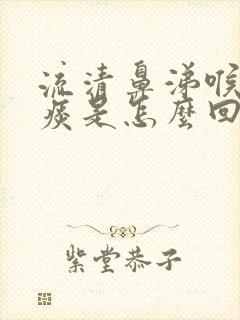 流清鼻涕喉
痰是怎麼回
紫堂恭子